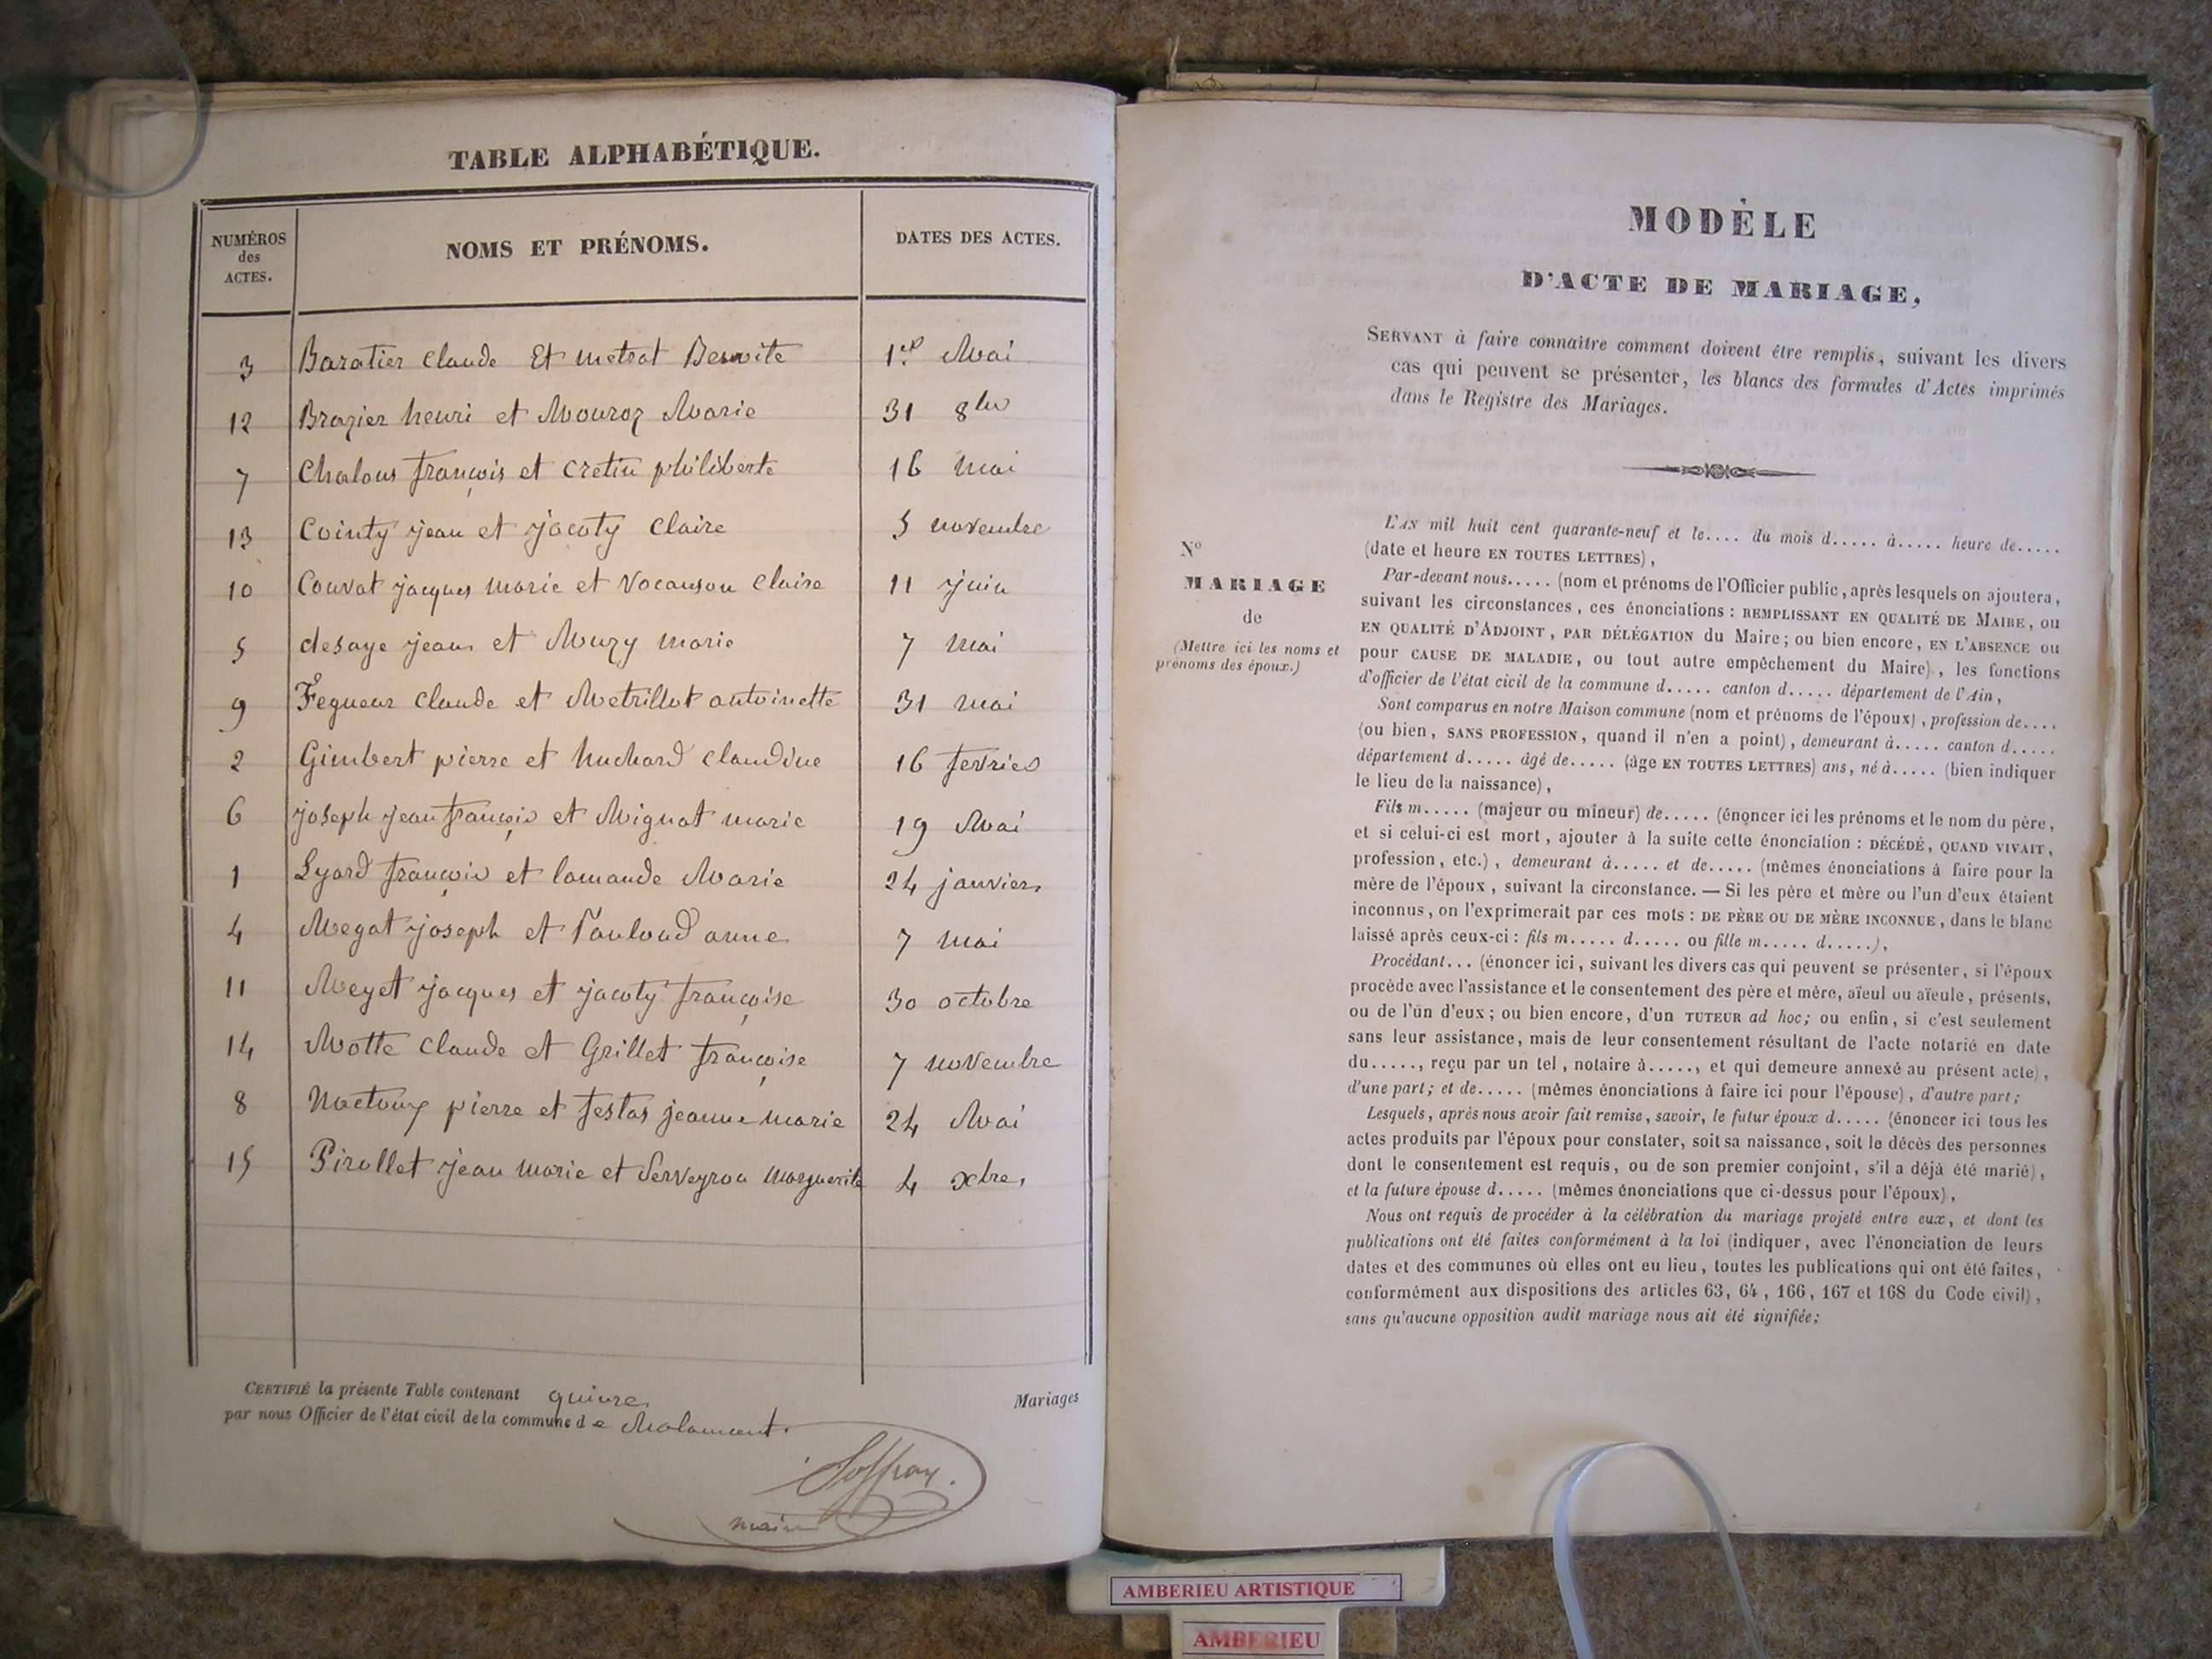 TABLE ALPHABÉTIQUE.
NUMÉROS des ACTES. NOMS ET PRÉNOMS. DATES DES ACTES.
3 Baratier Claude Et metrat Benoite 1er Mai
12 Brazier henri et Mouroz Marie 31 8bre
7 Chalous françois et cretin philiberte 16 mai
13 Cointy jean et jacoty Claire 5 novembre
10 Couvat jacques marie et Vocanson Claire 11 juin
5 desaye jean et Muzy marie 7 mai
9 Fegueur Claude et Metrillot antoinette 31 mai
2 Gimbert pierre et huchard Claudine 16 fevrier
6 joseph jean françois et Mignat marie 19 Mai
1 Lyard françois et lamande Marie 24 janvier
4 Megat joseph et Pauloud anne 7 mai
11 Meyet jacques et jacoty françoise 30 octobre
14 Motte Claude et Grillet françoise 7 novembre
8 pierre et festas jeanne marie 24 Mai
15 Pirollet jean marie et Serveyron Marguerite 4 xbre,
CERTIFIÉ la présente Table contenant quinze Mariages
par nous Officier de l'état civil de la commune de Molamment.
maire
MODÈLE
D'ACTE DE MARIAGE,
SERVANT à faire connaître comment doivent être remplis, suivant les divers
cas qui peuvent se présenter, les blancs des formules d'Actes imprimés
dans le Registre des Mariages.
N°
MARIAGE
de
(Mettre ici les noms et
prénoms des époux.)
L'AN mil huit cent quarante-neuf et le.... du mois d..... à..... heure de.....
(date et heure EN TOUTES LETTRES),
Par-devant nous..... (nom et prénoms de l'Officier public, après lesquels on ajoutera,
suivant les circonstances, ces énonciations : REMPLISSANT EN QUALITÉ DE MAIRE, ou
EN QUALITÉ D'ADJOINT, PAR DÉLÉGATION du Maire; ou bien encore, EN L'ABSENCE ou
pour CAUSE DE MALADIE, ou tout autre empêchement du Maire), les fonctions
d'officier de l'état civil de la commune d..... canton d..... département de l'Ain,
Sont comparus en notre Maison commune (nom et prénoms de l'époux), profession de....
(ou bien, SANS PROFESSION, quand il n'en a point), demeurant à..... canton d.....
département d..... âgé de..... (âge EN TOUTES LETTRES) ans, né à..... (bien indiquer
le lieu de la naissance),
Fils m..... (majeur ou mineur) de..... (énoncer ici les prénoms et le nom du père,
et si celui-ci est mort, ajouter à la suite cette énonciation : DÉCÉDÉ, QUAND VIVAIT,
profession, etc.), demeurant à..... et de..... (mêmes énonciations à faire pour la
mère de l'époux, suivant la circonstance. — Si les père et mère ou l'un d'eux étaient
inconnus, on l'exprimerait par ces mots : DE PÈRE OU DE MÈRE INCONNUE, dans le blanc
laissé après ceux-ci : fils m..... d..... ou fille m..... d.....),
Procédant... (énoncer ici, suivant les divers cas qui peuvent se présenter, si l'époux
procède avec l'assistance et le consentement des père et mère, aïeul ou aïeule, présents,
ou de l'un d'eux; ou bien encore, d'un TUTEUR ad hoc; ou enfin, si c'est seulement
sans leur assistance, mais de leur consentement résultant de l'acte notarié en date
du....., reçu par un tel, notaire à....., et qui demeure annexé au présent acte),
d'une part; et de..... (mêmes énonciations à faire ici pour l'épouse), d'autre part;
Lesquels, après nous avoir fait remise, savoir, le futur époux d..... (énoncer ici tous les
actes produits par l'époux pour constater, soit sa naissance, soit le décès des personnes
dont le consentement est requis, ou de son premier conjoint, s'il a déjà été marié),
et la future épouse d..... (mêmes énonciations que ci-dessus pour l'époux),
Nous ont requis de procéder à la célébration du mariage projeté entre eux, et dont les
publications ont été faites conformément à la loi (indiquer, avec l'énonciation de leurs
dates et des communes où elles ont eu lieu, toutes les publications qui ont été faites,
conformément aux dispositions des articles 63, 64, 166, 167 et 168 du Code civil),
sans qu'aucune opposition audit mariage nous ait été signifiée;
AMBERIEU ARTISTIQUE
AMBERIEU